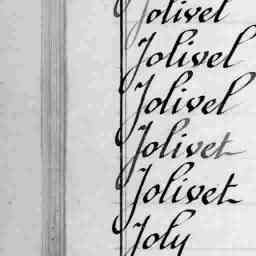 Jolivel
Jolivel
Jolivel
Jolivet
Jolivet
Joly